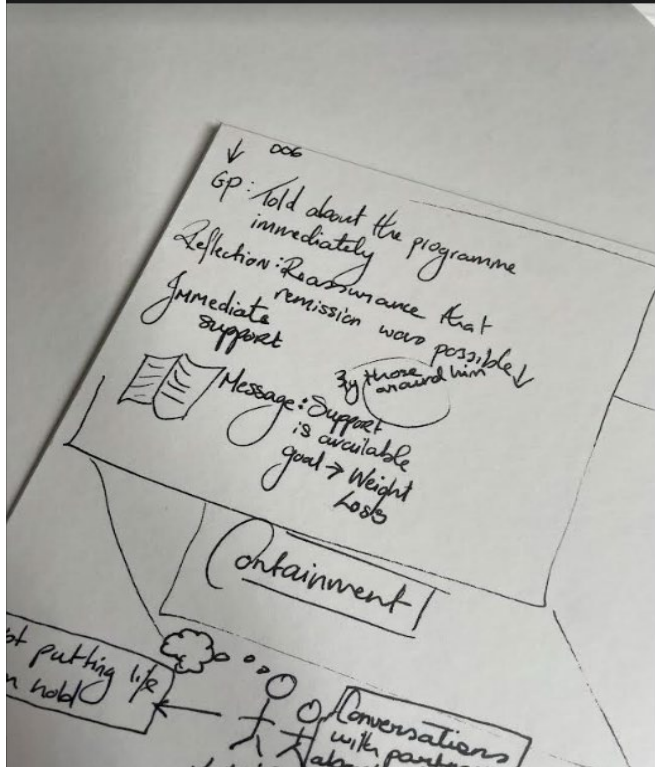 006
GP: Told about the programme
immediately
Reflection: Reassurance that
remission was possible
Immediate
support
By those
around him
Message: Support
is available
goal → Weight
Loss
Containment
putting life
hold
Conversations
with